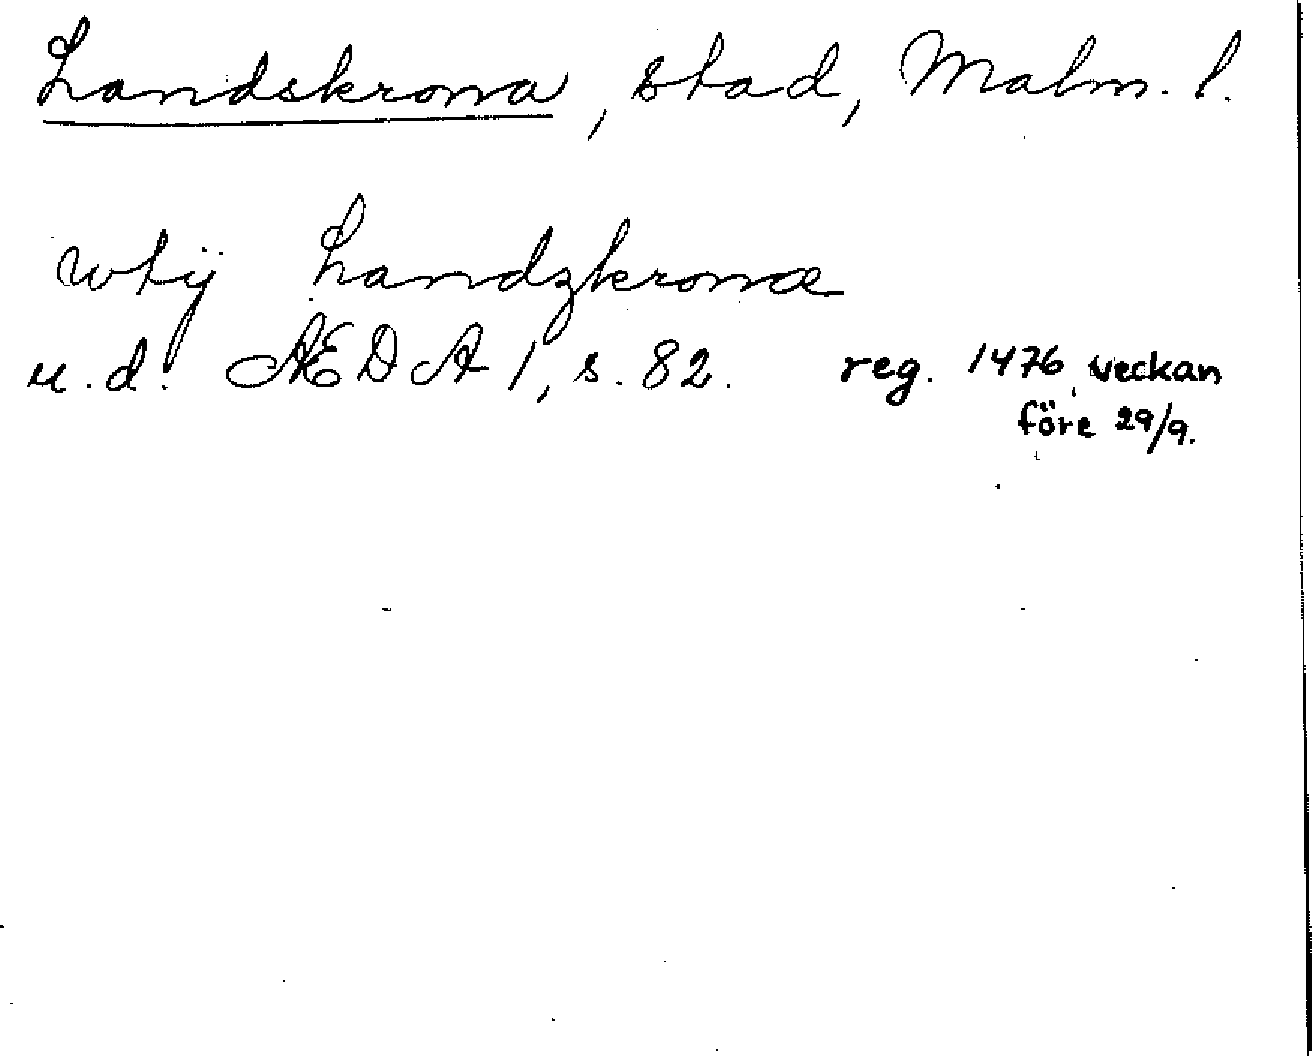 Landskrona, stad, Malm. l.
wtij Landzkronæ
u.d. ÆDA 1, s. 82. reg. 1476 veckan
före 29/9.